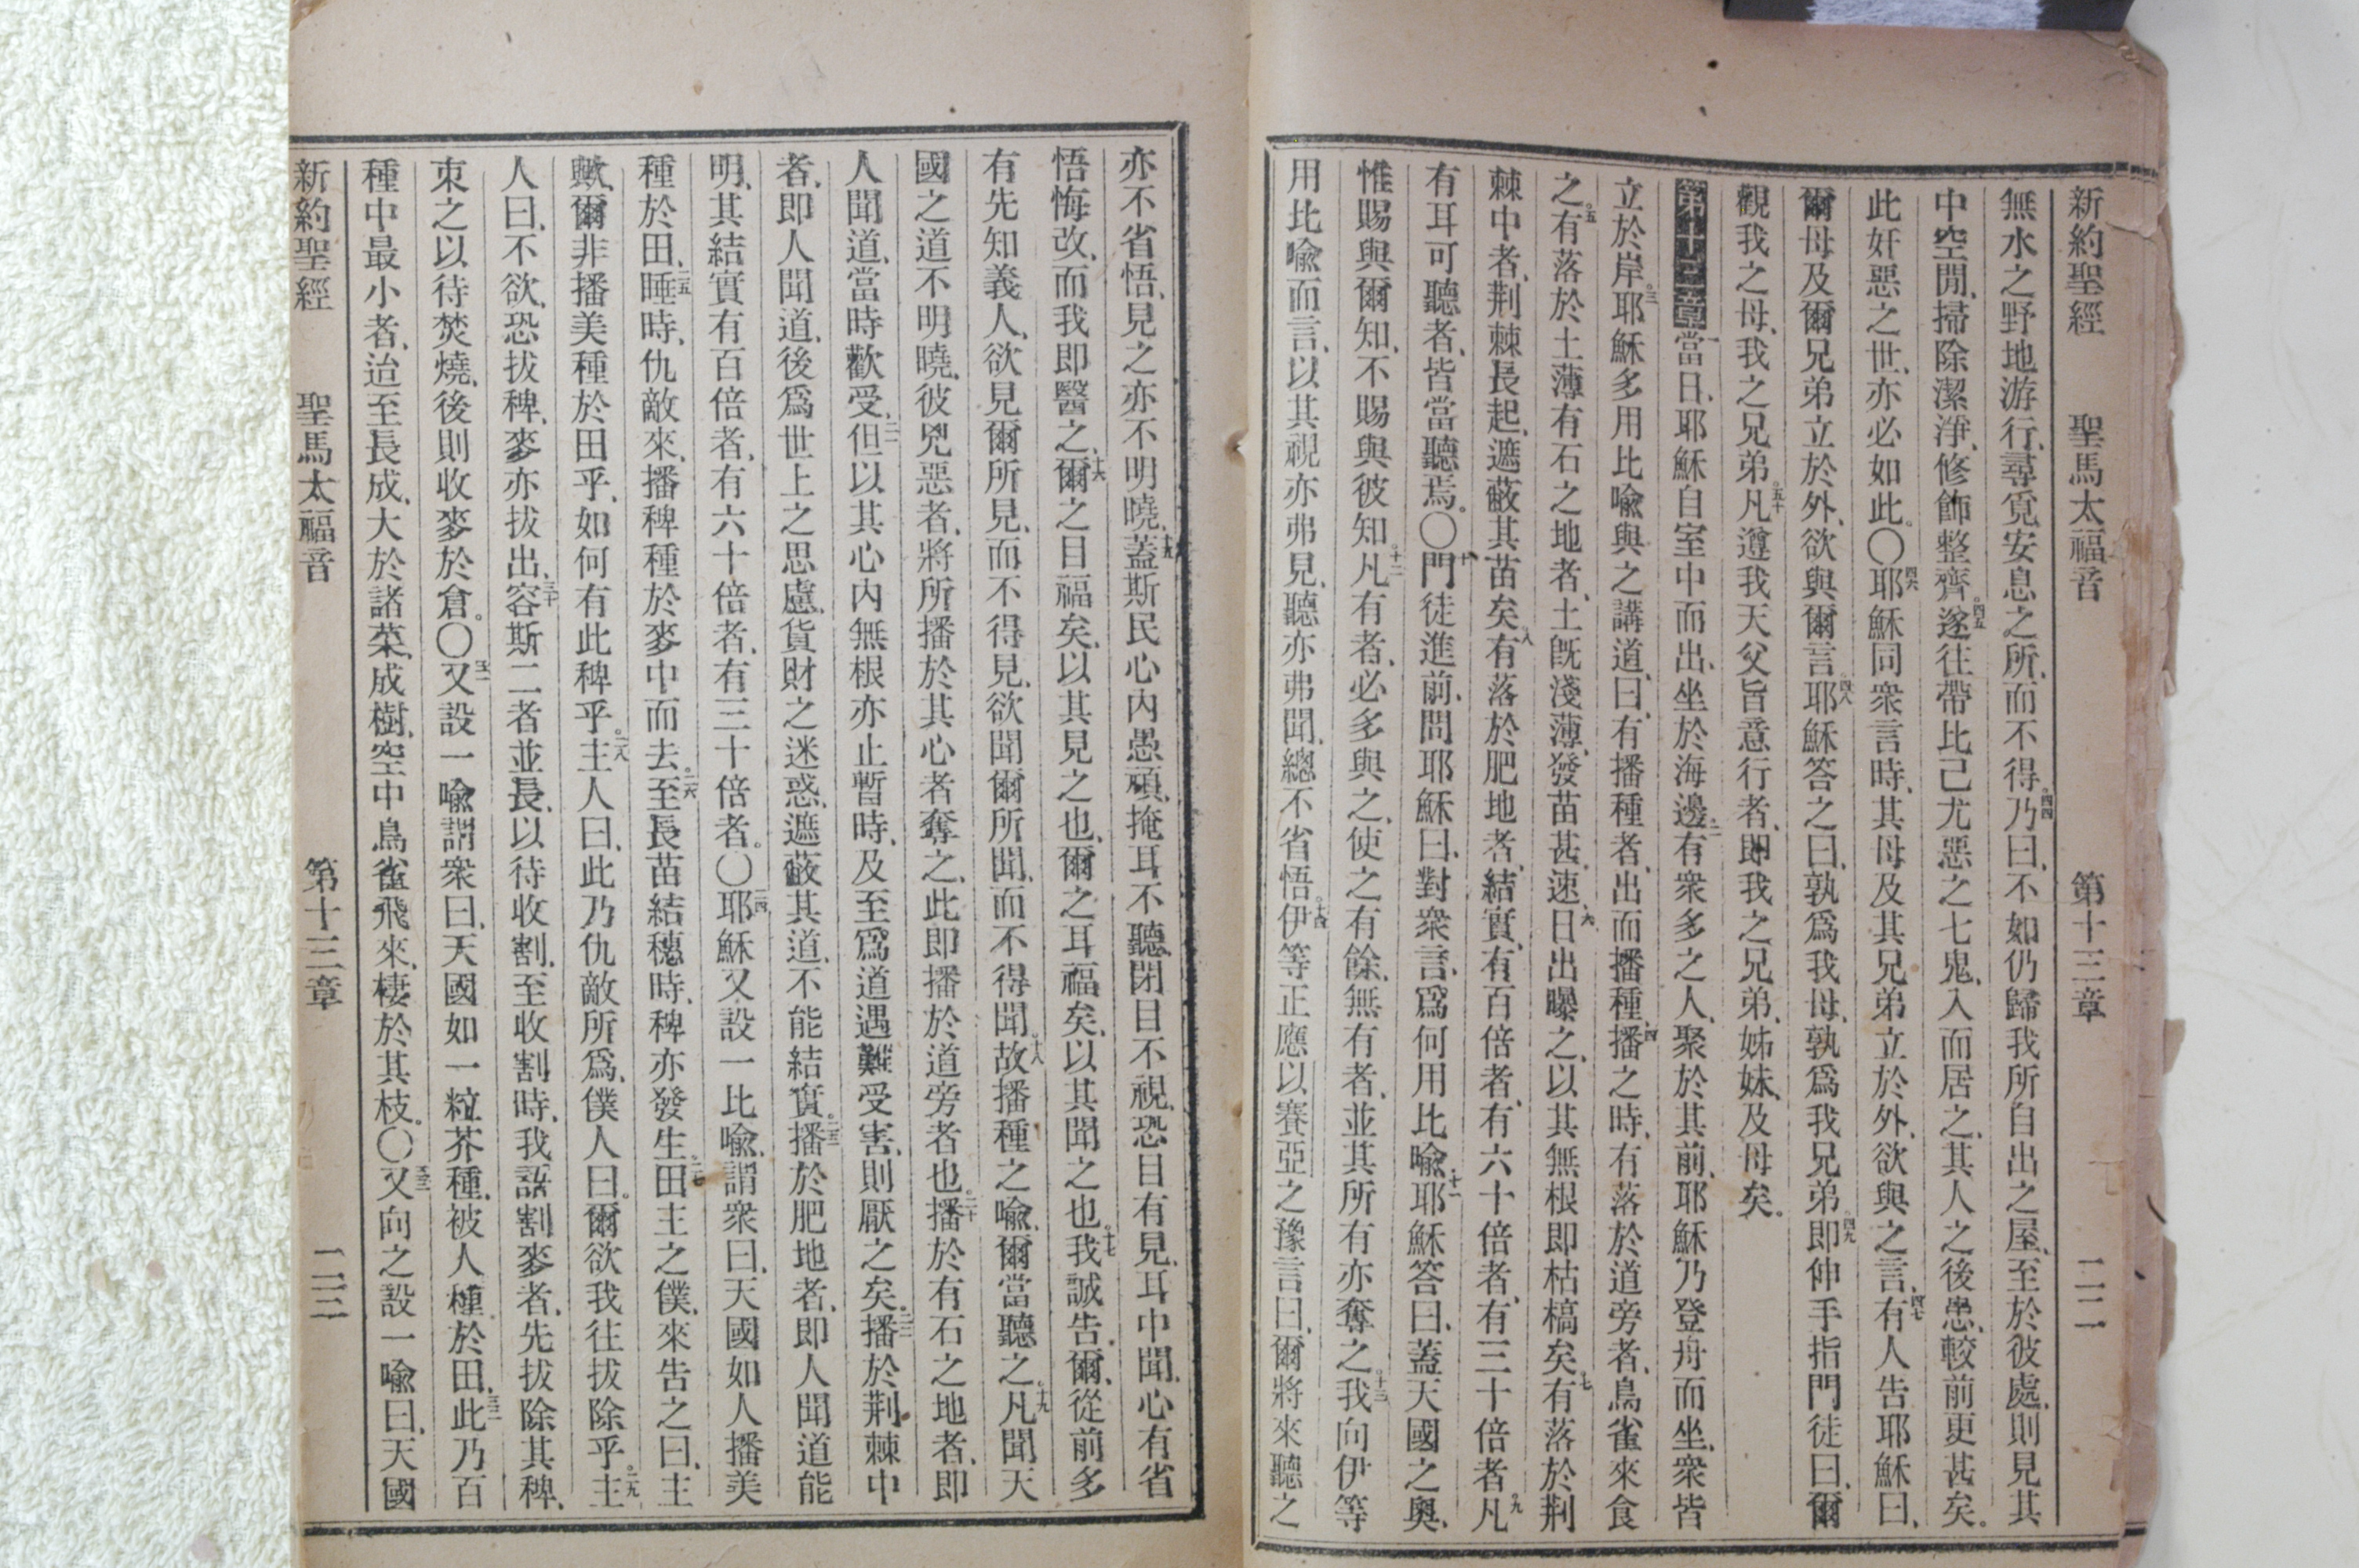 新約聖經 聖馬太福音 第十三章 二十二
無水之野地游行、尋覓安息之所、而不得。四四乃曰、不如仍歸我所自出之屋、至於彼處、則見其
中空閒、掃除潔淨、修飾整齊。四五遂往帶比己尤惡之七鬼、入而居之、其人之後患、較前更甚矣。
此奸惡之世、亦必如此。〇四六耶穌同衆言時、其母及其兄弟立於外、欲與之言、四七有人告耶穌曰、
爾母及爾兄弟立於外、欲與爾言。四八耶穌答之曰、孰爲我母、孰爲我兄弟。四九即伸手指門徒曰、爾
觀我之母、我之兄弟。五十凡遵我天父旨意行者、即我之兄弟、姊妹、及母矣。
第十三章 一當日、耶穌自室中而出、坐於海邊。二有衆多之人、聚於其前、耶穌乃登舟而坐、衆皆
立於岸。三耶穌多用比喻與之講道、曰、有播種者、出而播種、四播之時、有落於道旁者、鳥雀來食
之。五有落於土薄有石之地者、土旣淺薄、發苗甚速、六日出曝之、以其無根即枯槁矣。七有落於荆
棘中者、荆棘長起、遮蔽其苗矣。八有落於肥地者、結實、有百倍者、有六十倍者、有三十倍者。九凡
有耳可聽者、皆當聽焉。〇十門徒進前、問耶穌曰、對衆言、爲何用比喻。十一耶穌答曰、蓋天國之奧、
惟賜與爾知、不賜與彼知。十二凡有者、必多與之、使之有餘、無有者、並其所有亦奪之。十三我向伊等
用比喻而言、以其視亦弗見、聽亦弗聞、總不省悟。十四伊等正應以賽亞之豫言曰、爾將來聽之
亦不省悟、見之亦不明曉、十五蓋斯民心內愚頑、掩耳不聽、閉目不視、恐目有見、耳中聞、心有省
悟悔改、而我即醫之、十六爾之目福矣、以其見之也、爾之耳福矣、以其聞之也。十七我誠告爾、從前多
有先知義人、欲見爾所見、而不得見、欲聞爾所聞、而不得聞。十八故播種之喻、爾當聽之。十九凡聞天
國之道不明曉、彼兇惡者、將所播於其心者奪之、此即播於道旁者也。二十播於有石之地者、即
人聞道、當時歡受、二一但以其心內無根亦止暫時、及至爲道遇難受害、則厭之矣。二二播於荆棘中
者、即人聞道、後爲世上之思慮、貨財之迷惑、遮蔽其道、不能結實。二三播於肥地者、即人聞道能
明、其結實有百倍者、有六十倍者、有三十倍者。〇二四耶穌又設一比喻、謂衆曰、天國如人播美
種於田、二五睡時、仇敵來、播稗種於麥中而去。二六至長苗結穗時、稗亦發生。二七田主之僕、來告之曰、主
歟、爾非播美種於田乎、如何有此稗乎。二八主人曰、此乃仇敵所爲、僕人曰。爾欲我往拔除乎。二九主
人曰、不欲、恐拔稗、麥亦拔出、三十容斯二者並長、以待收割、至收割時、我語割麥者、先拔除其稗、
束之以待焚燒、後則收麥於倉。〇三一又設一喻謂衆曰、天國如一粒芥種、被人種於田、三二此乃百
種中最小者、迨至長成、大於諸菜、成樹、空中鳥雀飛來、棲於其枝。〇三三又向之設一喻曰、天國
新約聖經 聖馬太福音 第十三章 二十三